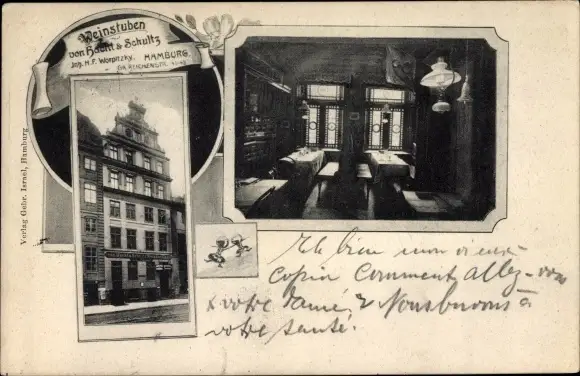 Weinstuben
von Hacht & Schultz
Joh. H. F. Worpitzky. HAMBURG.
GR. REICHENSTR.
Verlag Gebr. Israel, Hamburg
Ich bin
Copin Comment allez-vous
votre dame, Nous buvons à
votre santé.